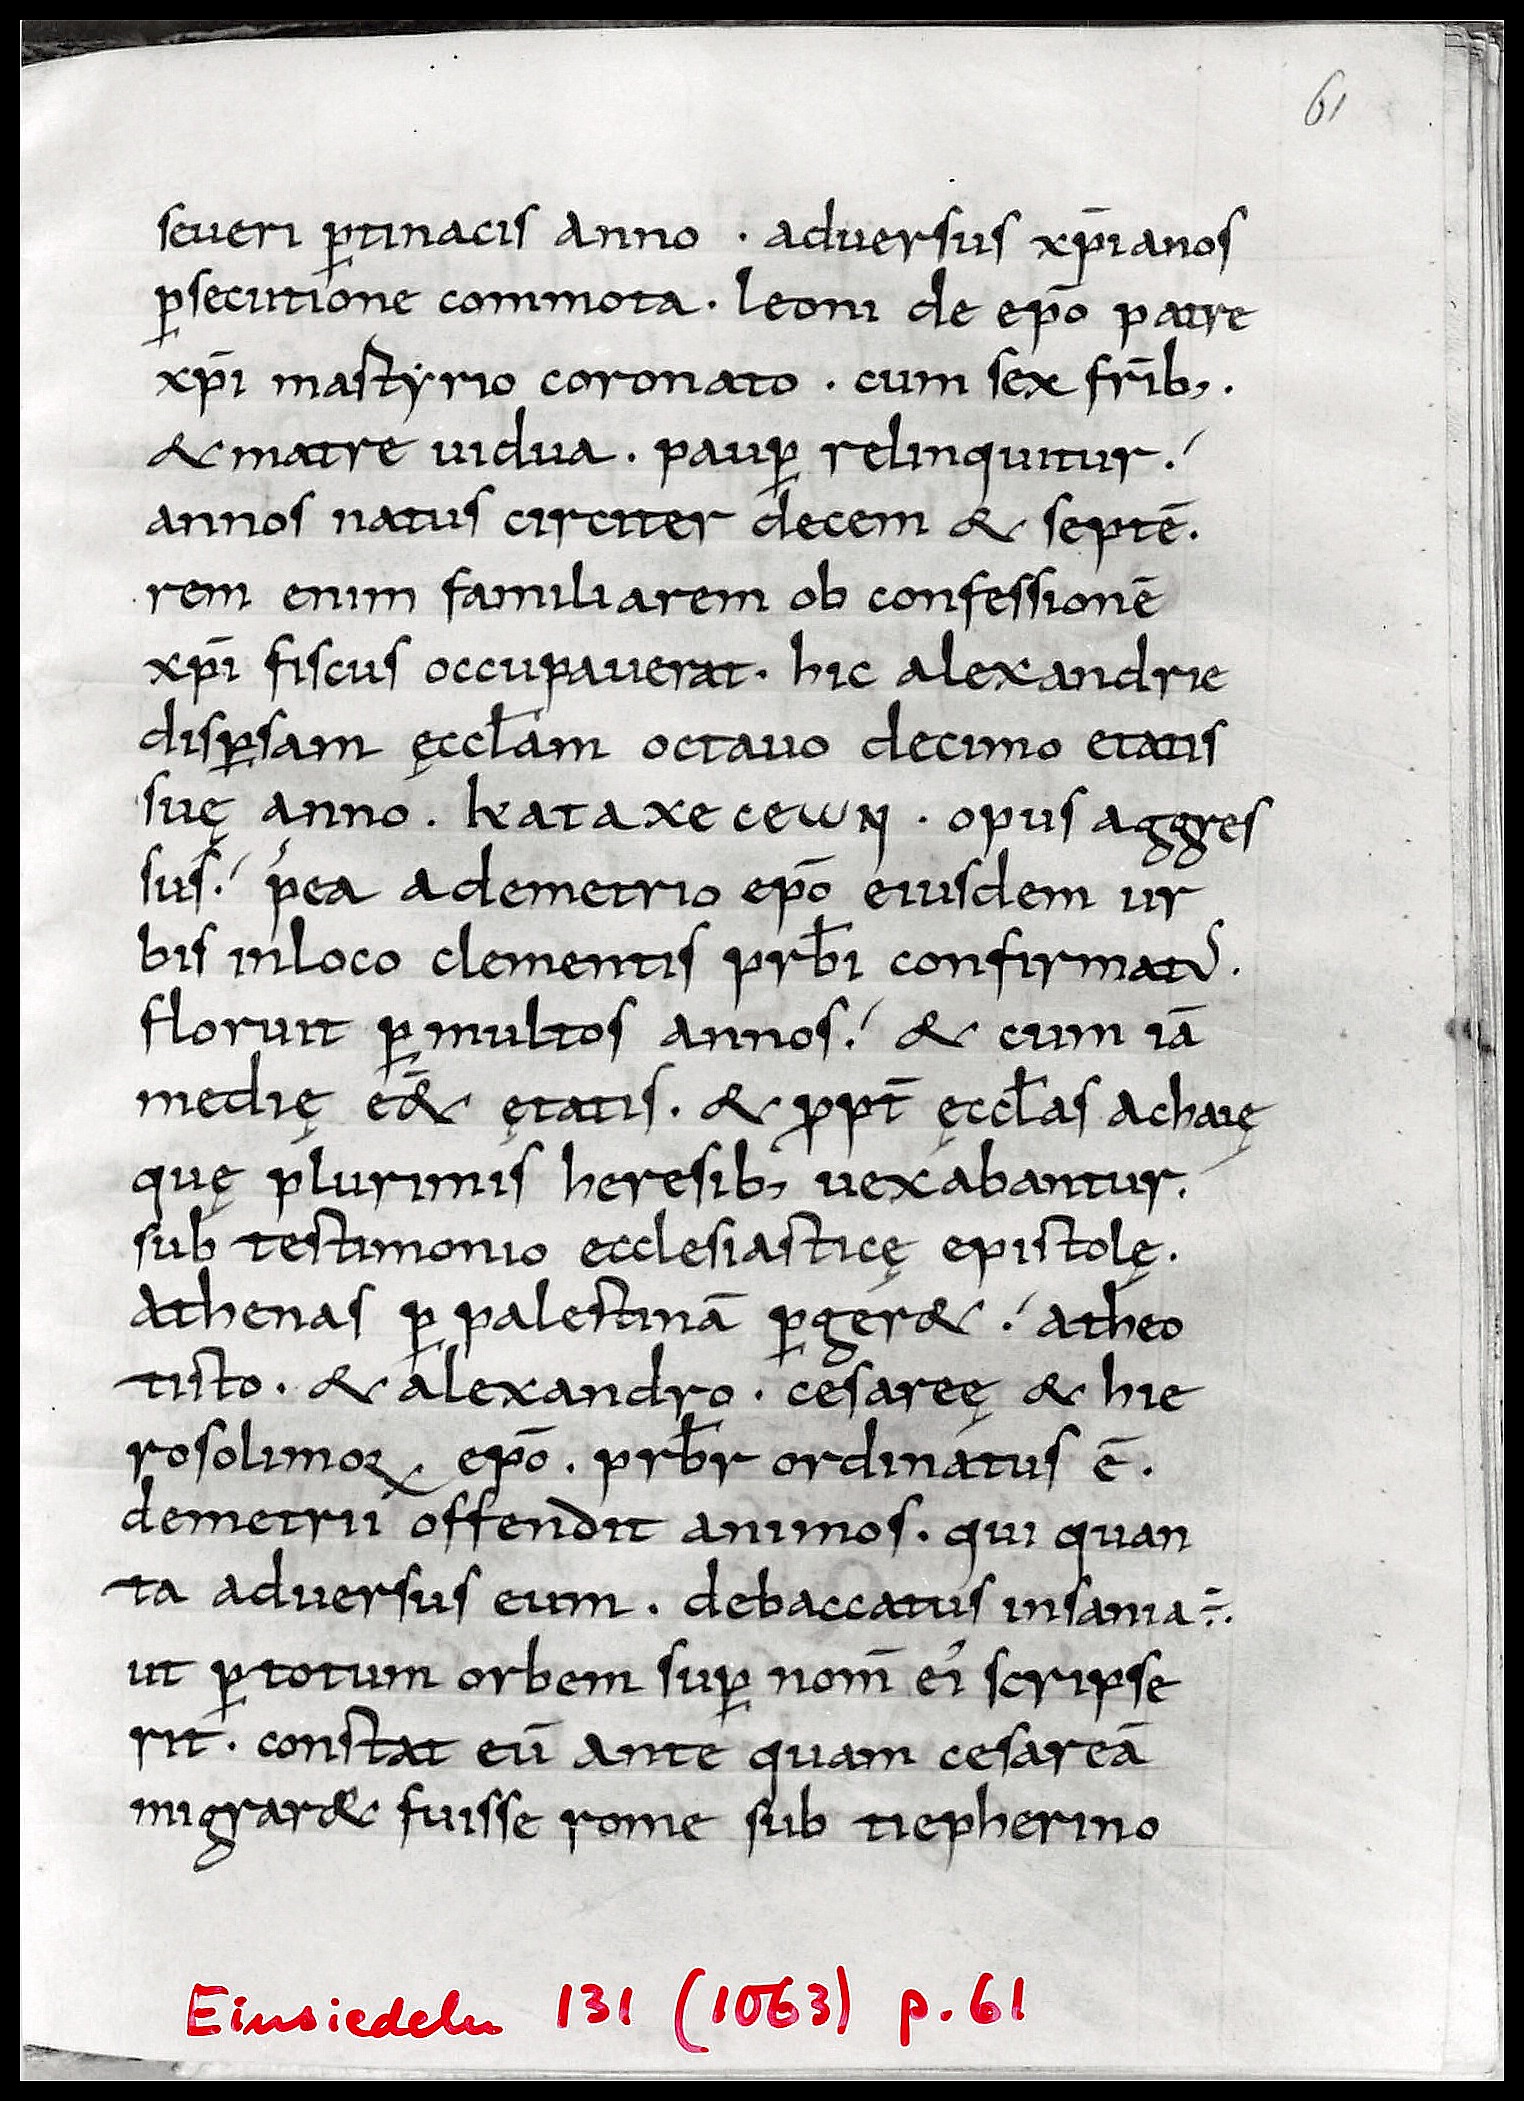 61
seueri ꝑtinacis anno · aduersus xp̄ianos
ꝑsecutione commota · leoni de ep̄o patre
xp̄i mastẏrio coronato · cum sex fr̄ib; ·
& matre uidua · pauꝑ relinquitur ·/
annos natus circiter decem & septē ·
rem enim familiarem ob confessionē
xp̄i fiscus occupauerat · hic alexandrie
disꝑsam ęccl̄am octauo decimo etatis
suę anno · kataxecewN · opus aggres
sus ·/ p̍ea ademetrio ep̄o eiusdem ur
bis inloco clementis prb̄i confirmatꝰ ·
floruit ꝑ multos annos ·/ & cum iā
medię ēē& ętatis · & ꝓpt̄ ęccl̄as achaię
quę plurimis heresib; uexabantur ·/
sub testimonio ecclesiasticę epistolę ·
athenas ꝑ palestinā ꝑger& ·/ atheo
tisto · & alexandro · cesareę & hie
rosolimoꝝ ep̄o · prb̄r ordinatus ē ·
demetrii offendit animos · qui quan
ta aduersus eum · debaccatus insania ÷ ·
ut ꝑ totum orbem suꝑ nom̄ ei̓ scripse
rit · constat eū ante quam cesareā
migrar& fuisse rome sub tiepherino
Einsiedeln 131 (1063) p. 61